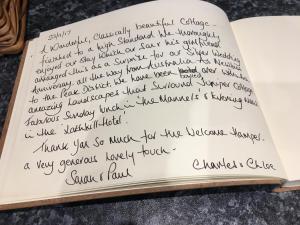 22/10/17
A Wonderful, Classically beautiful Cottage -
finished to a high standard. We thoroughly
enjoyed our stay which our son & his girlfriend
arranged this as a surprise for our Silver Wedding
Anniversary all the way from Australia & New Zealand
to the Peak District. We have been over with the
amazing landscapes that surround Juniper Cottage.
Fabulous Sunday lunch in the Manners & evening meal
in the 'Lathkill Hotel'.
Thank you so much for the Welcome Hamper.
a very generous lovely touch.
Sarah & Paul
Charles & Chloe